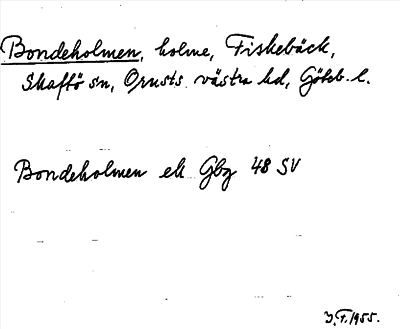 Bondeholmen, holme, Fiskebäck,
Skaftö sn, Orusts västra hd, Göteb. l.
Bondeholmen ek Gbg 48 SV
J.F. 1955.